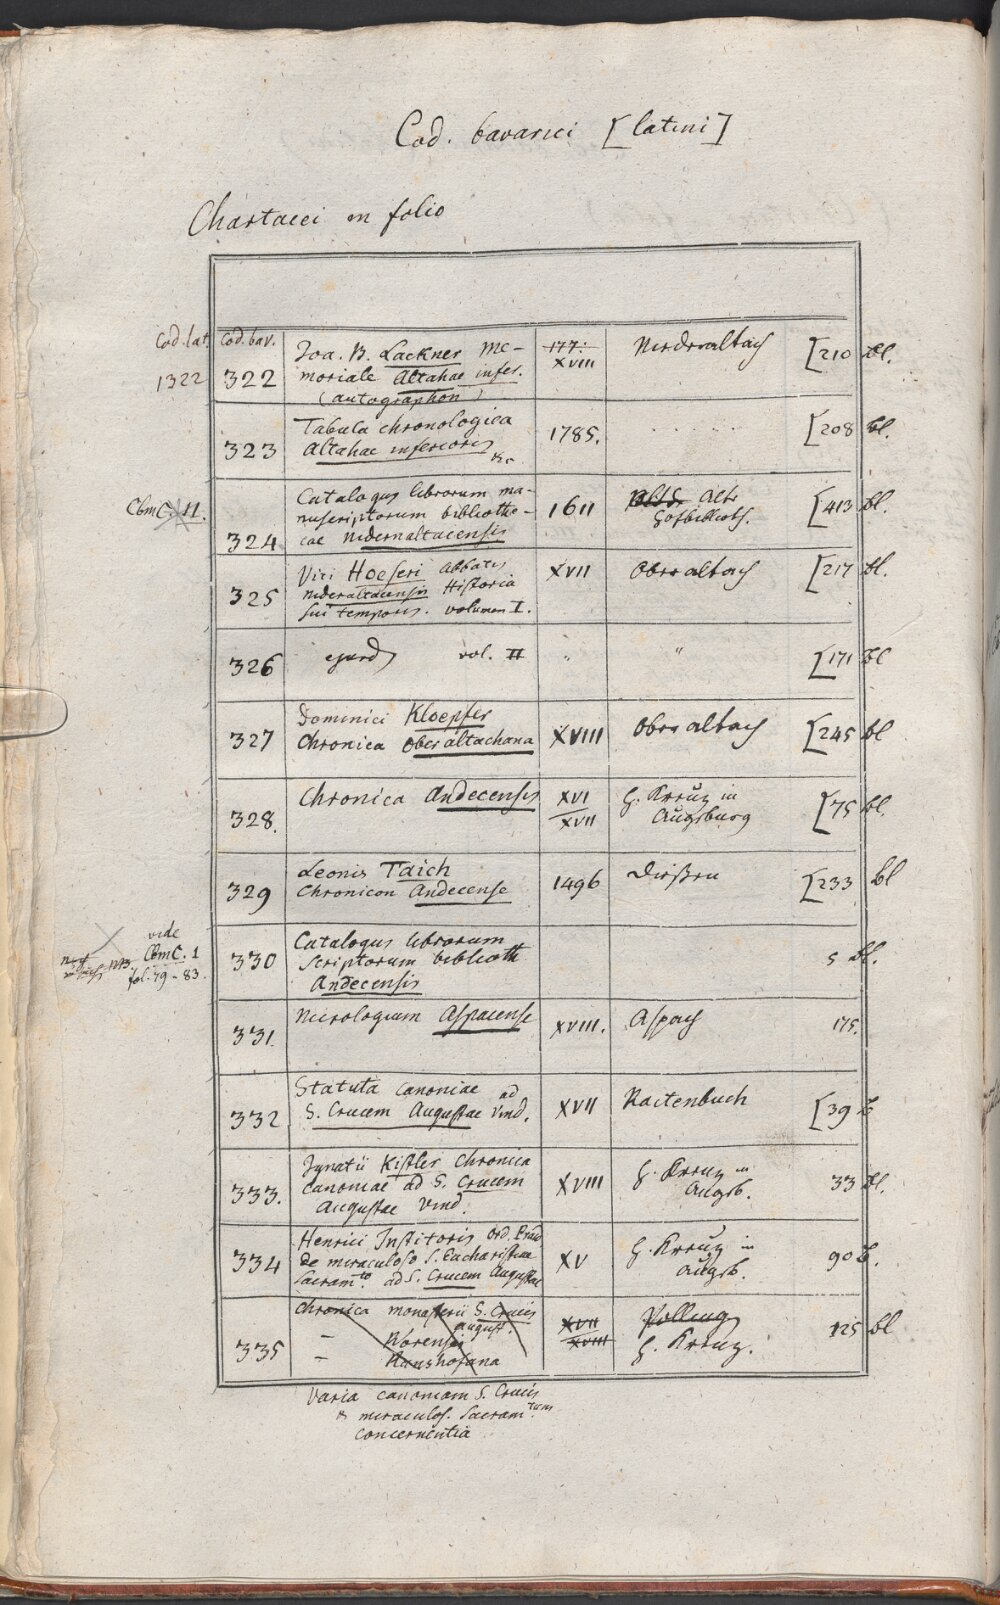 Cod. bavarici [latini]
Chartacei in folio
Cod. lat. Cod. bav.
1322 322 Joa. B. Lackner Me- 177: Niederaltach [210 bl.
moriale Altahae infer. XVIII
(autographon)
323 Tabula chronologica 1785. . . . . . [208 bl.
Altahae inferioris
&c
CbmC. 11. 324 Catalogus librorum ma- 1611 Alte [413 bl.
nuscriptorum bibliothe- Hofbiblioth.
cae Nidernaltacensis
325 Viti Hoeseri Abbatis XVII Oberaltach [217 bl.
nideraltacensis Historia
sui temporis. volumen I.
326 ejusd vol. II " " [171 bl
327 Dominici Kloepfer XVIII Oberaltach [245 bl
Chronica Oberaltachana
328. Chronica Andecensis XVI H. Kreuz in [75 bl.
XVII Augsburg
329 Leonis Taich 1496 Dießen [233 bl
Chronicon Andecense
vide
CbmC. 1
NB. fol. 79-83.
330 Catalogus librorum 5 bl.
scriptorum biblioth
Andecensis
331. Necrologium Aspacense XVIII. Aspach 175.
332 Statuta canoniae ad XVII Raitenbuch [39 b
S. Crucem Augustae Vind.
333. Ignatii Kistler Chronica XVIII H. Kreuz in 33 bl.
canoniae ad S. Crucem Augsb.
Augustae Vind.
334 Henrici Institoris Ord. Praed XV H. Kreuz in 90 b.
de miraculoso S. Eucharistiae Augsb.
Sacram.to ad S. Crucem Augustae
335 Chronica monasterii S. Crucis XVII Polling 125 bl
August. XVIII H. Kreuz.
– Rorensis
– Ranshofana
Varia canoniam S. Crucis
& miraculos. Sacram.tum
concernentia